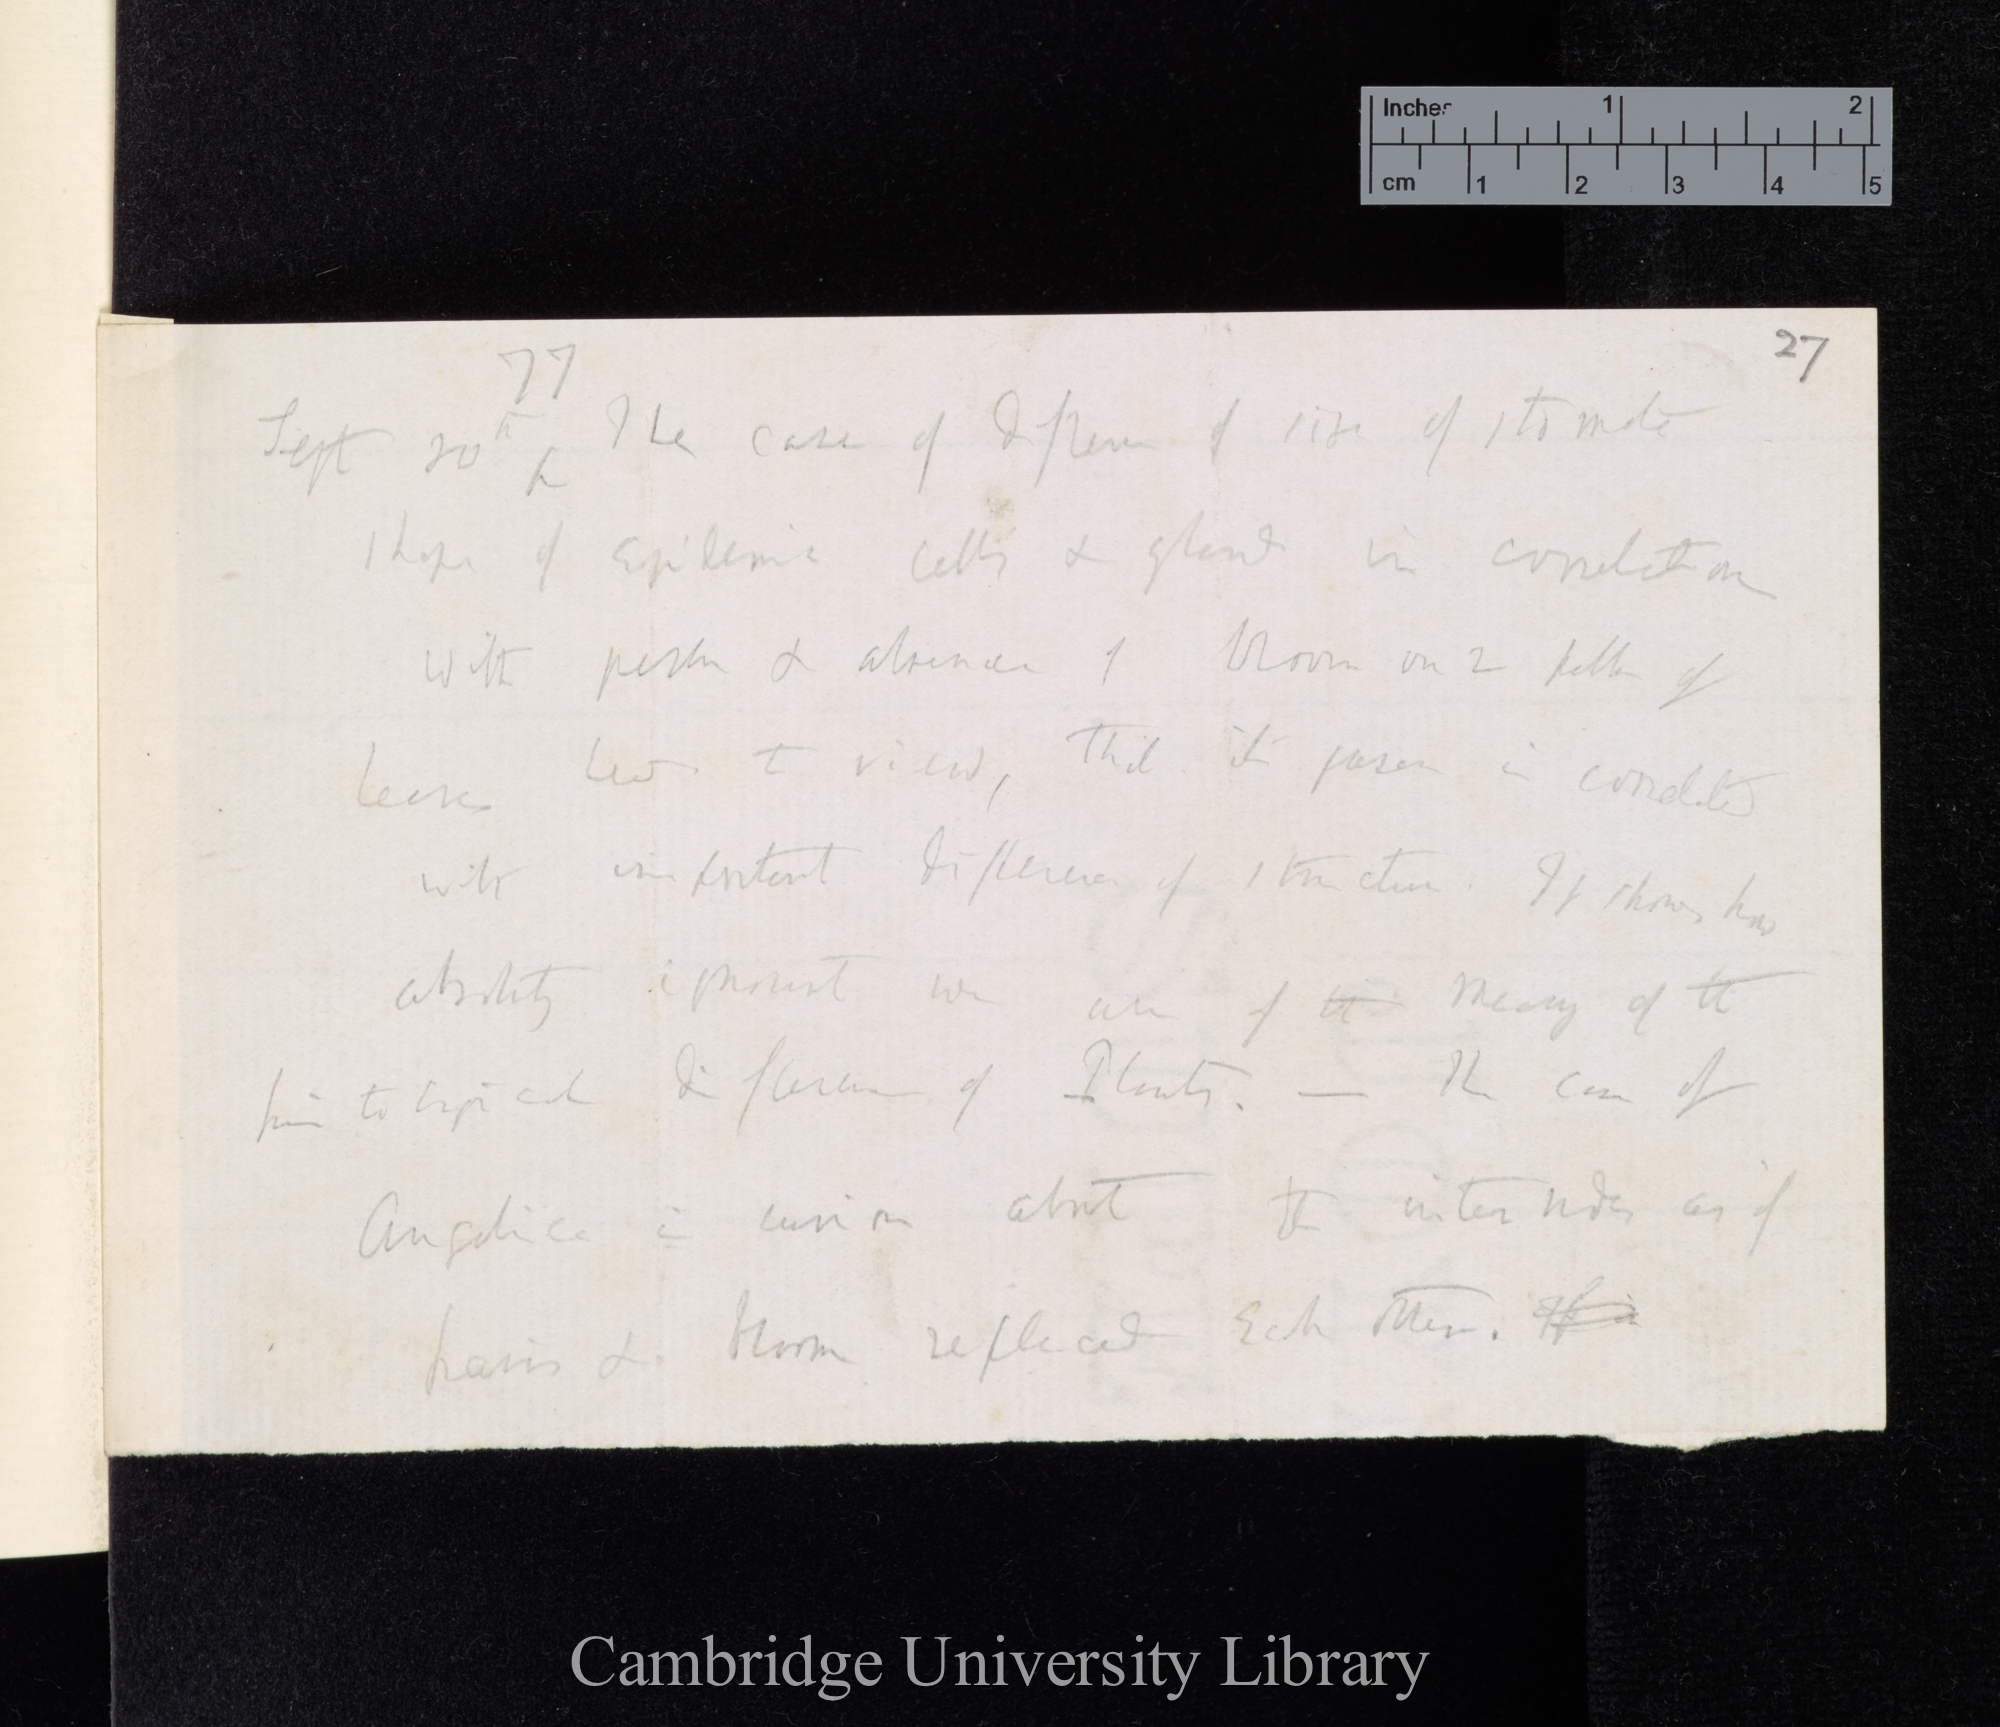 Inches 1 2
cm 1 2 3 4 5
27
77
Sept 20th The case of difference of size of stomata
shape of epidermic cells & glands in correlation
with presence & absence of bloom on 2 of
leaves leads to view, that its presence is correlated
with important difference of structure. It shows how
absolutely ignorant we are of the meaning of the
histological difference of Plants. — The case of
Angelica is curious about the internodes as if
hairs & bloom replaced each other.
Cambridge University Library